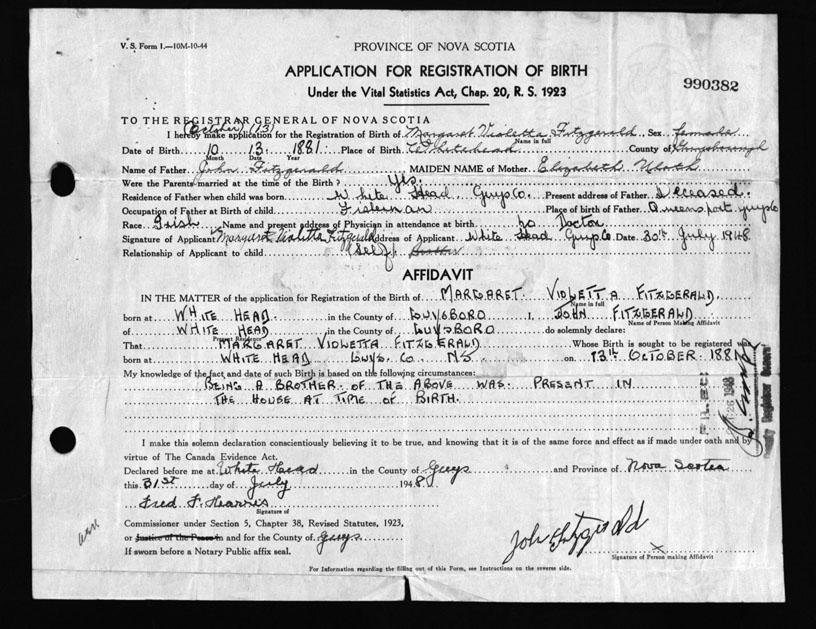 V. S. Form 1.—10M-10-44
PROVINCE OF NOVA SCOTIA
APPLICATION FOR REGISTRATION OF BIRTH
990382
Under the Vital Statistics Act, Chap. 20, R. S. 1923
TO THE REGISTRAR GENERAL OF NOVA SCOTIA
(October) (13)
I hereby make application for the Registration of Birth of Margaret Violetta Fitzgerald Sex female
Name in full
Date of Birth 10 13 1881 Place of Birth Whitehead County of Guysborough
Month Date Year
Name of Father John Fitzgerald MAIDEN NAME of Mother Elizabeth
Were the Parents married at the time of the Birth? Yes.
Residence of Father when child was born White Head, Guys Co. Present address of Father Deceased.
Occupation of Father at Birth of child Fisherman Place of birth of Father Queensport Guys Co
Race Irish Name and present address of Physician in attendance at birth no Doctor
Signature of Applicant Margaret Violetta Fitzgerald Address of Applicant White Head Guys Co Date 30th July 1948
Relationship of Applicant to child (Self)
AFFIDAVIT
IN THE MATTER of the application for Registration of the Birth of MARGARET VIOLETTA FITZGERALD.
Name in full
born at WHITE HEAD. in the County of GUYSBORO I, JOHN FITZGERALD
Name of Person Making Affidavit
of WHITE HEAD in the County of GUYSBORO do solemnly declare:
Present Residence
That MARGARET VIOLETTA FITZGERALD Whose Birth is sought to be registered was
born at WHITE HEAD GUYS. CO. NS on 13th OCTOBER. 1881
My knowledge of the fact and date of such Birth is based on the following circumstances:
BEING A BROTHER OF THE ABOVE WAS PRESENT IN
THE HOUSE AT TIME OF BIRTH.
I make this solemn declaration conscientiously believing it to be true, and knowing that it is of the same force and effect as if made under oath and by
virtue of The Canada Evidence Act.
Declared before me at White Head in the County of Guys and Province of Nova Scotia
this 31st day of July 1948
Fred F.
Signature of
Commissioner under Section 5, Chapter 38, Revised Statutes, 1923,
or Justice of the Peace in and for the County of Guys
If sworn before a Notary Public affix seal.
John Fitzgerald
X
Signature of Person making Affidavit
For Information regarding the filling out of this Form, see Instructions on the reverse side.